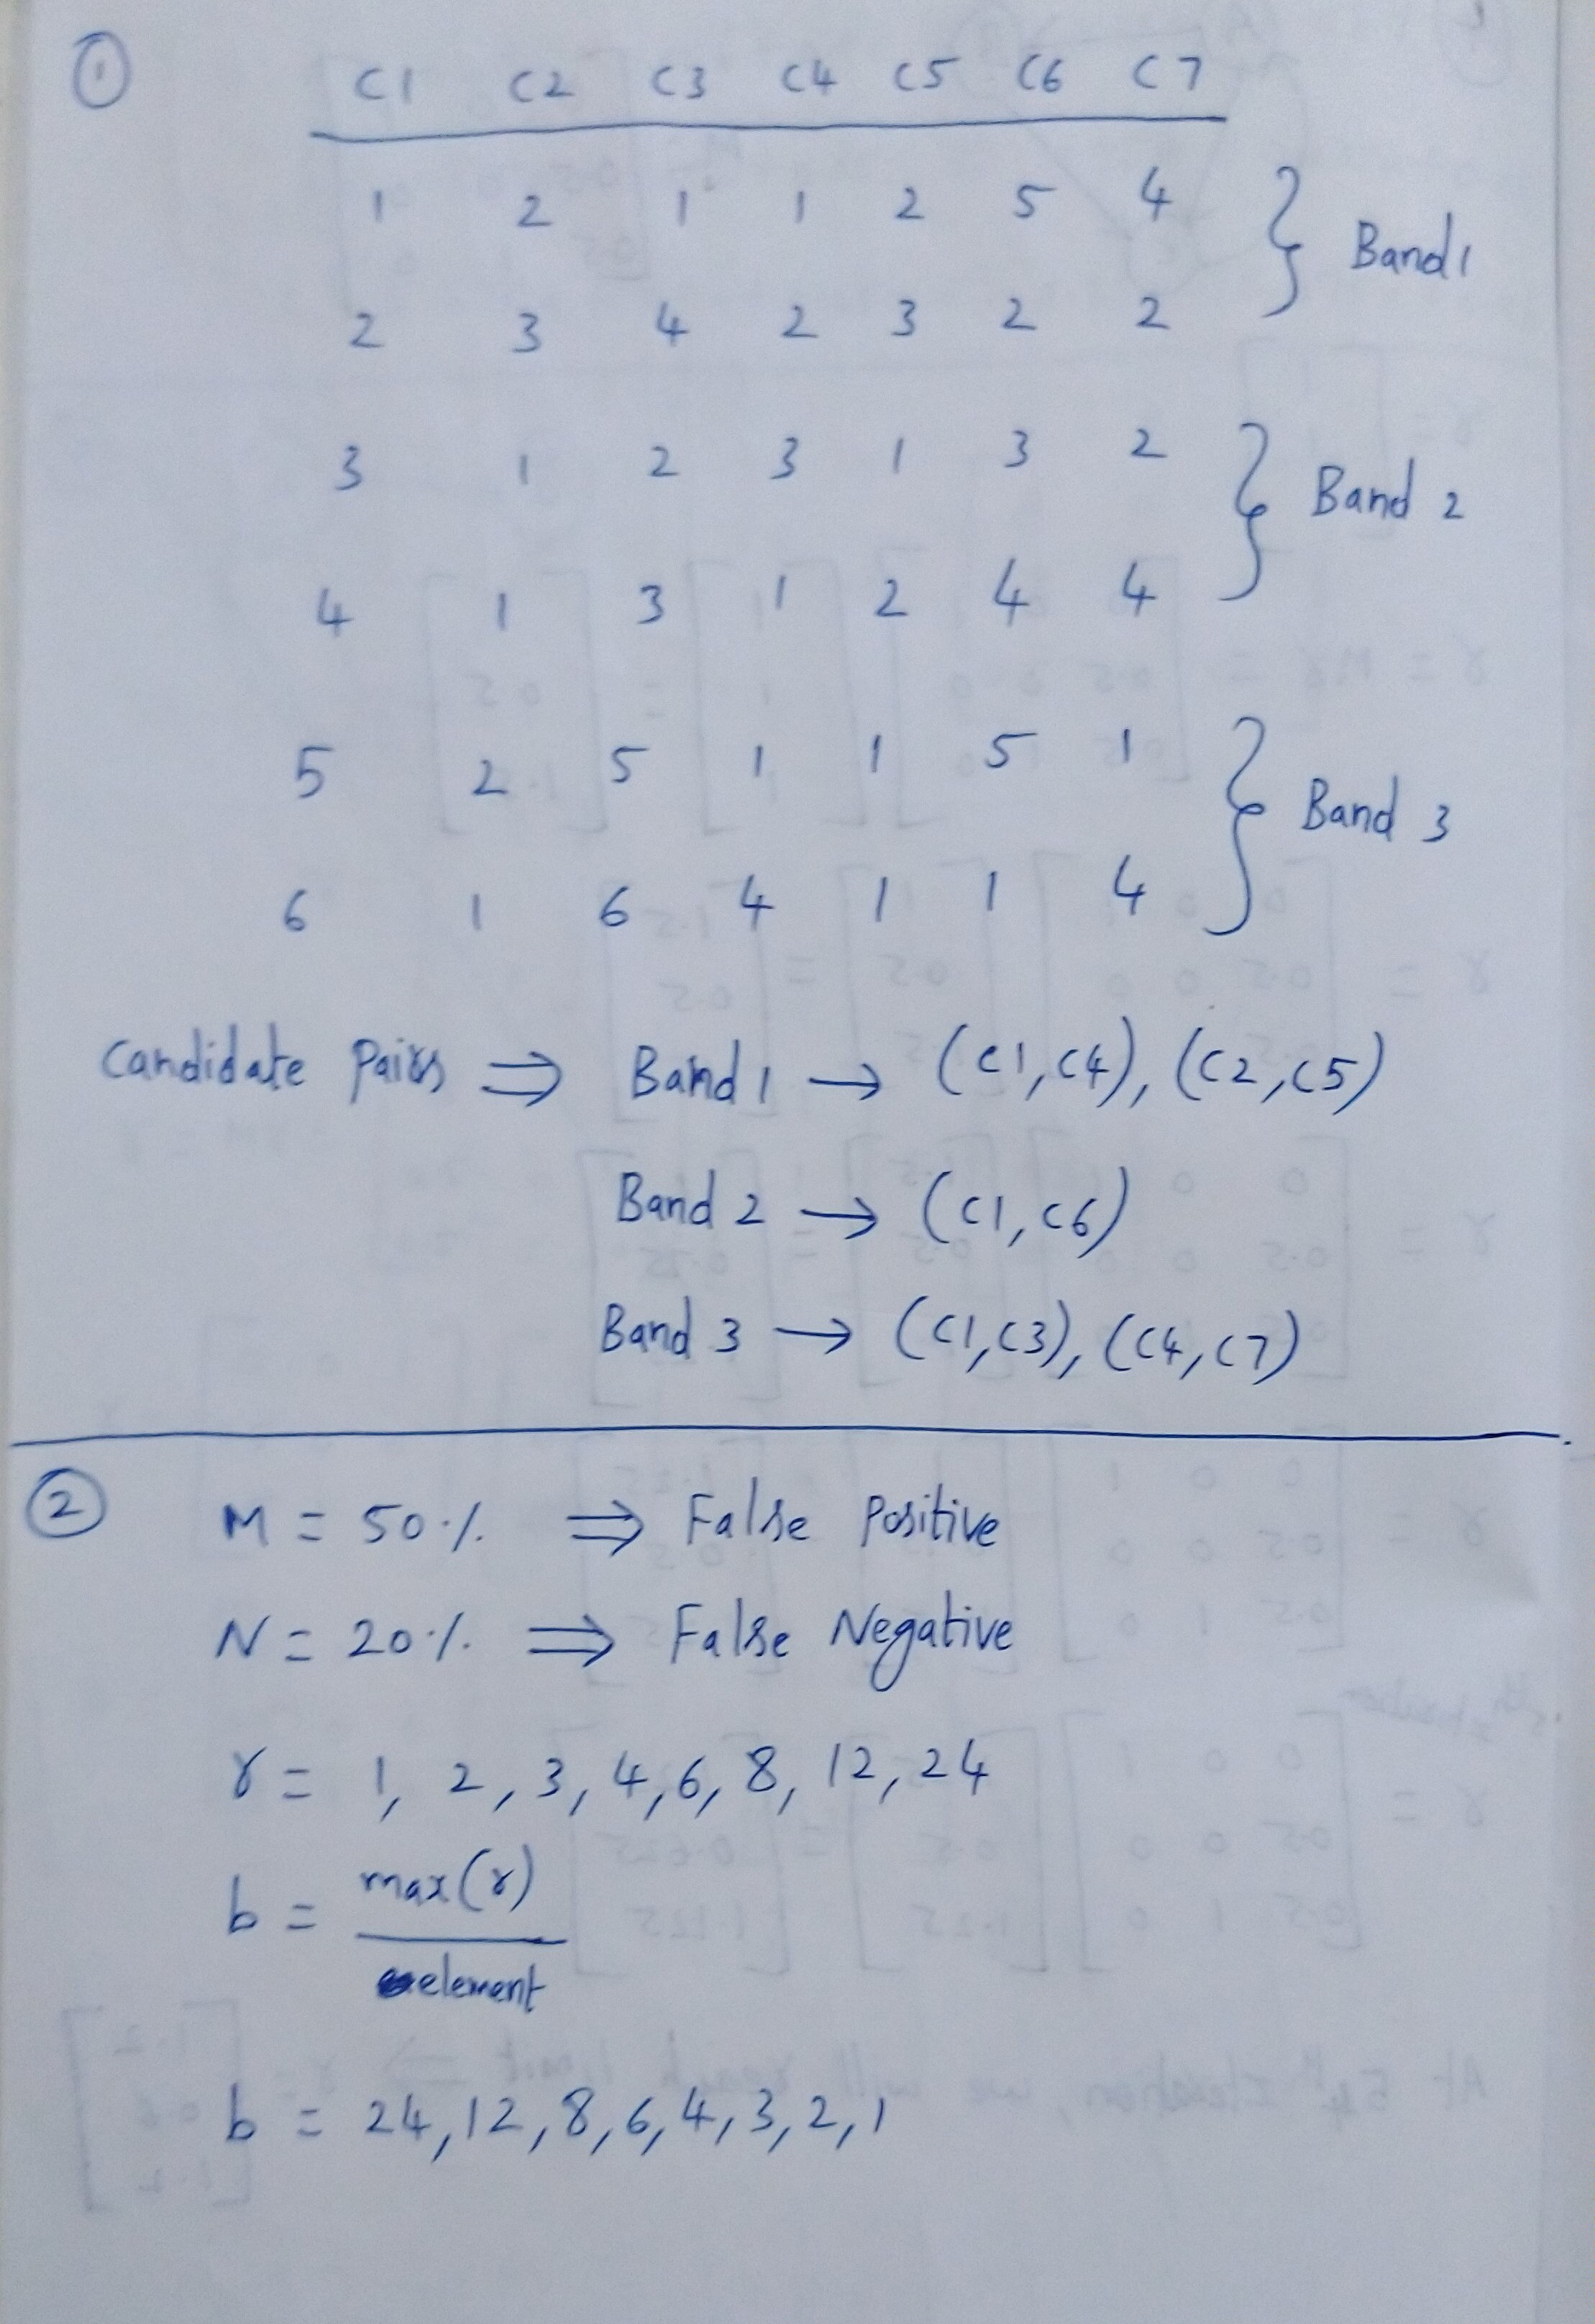 ①
C1 C2 C3 C4 C5 C6 C7
1 2 1 1 2 5 4 } Band 1
2 3 4 2 3 2 2
3 1 2 3 1 3 2 } Band 2
4 1 3 1 2 4 4
5 2 5 1 1 5 1 } Band 3
6 1 6 4 1 1 4
Candidate Pairs ⇒ Band 1 → (C1,C4), (C2,C5)
Band 2 → (C1,C6)
Band 3 → (C1,C3), (C4,C7)
② M = 50% ⇒ False Positive
N = 20% ⇒ False Negative
r = 1, 2, 3, 4, 6, 8, 12, 24
b = max(r)
element
b = 24, 12, 8, 6, 4, 3, 2, 1